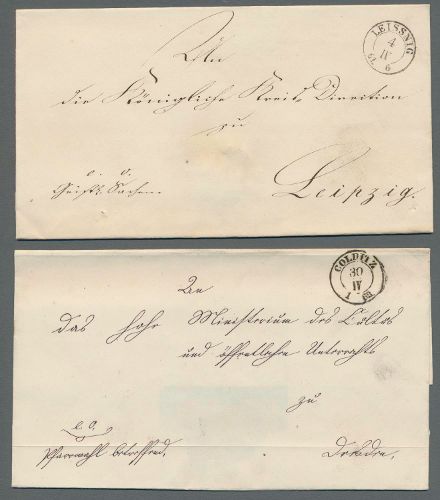 LEISSNIG
4
IV
6
An
die Königliche Kreis Direction
zu
Leipzig.
Geistl. Sachen.
COLDITZ
30
IV
1
An
das hohe Ministerium des Cultus
und öffentlichen Unterrichts
zu
Pfarrwahl betreffend.
Dresden.